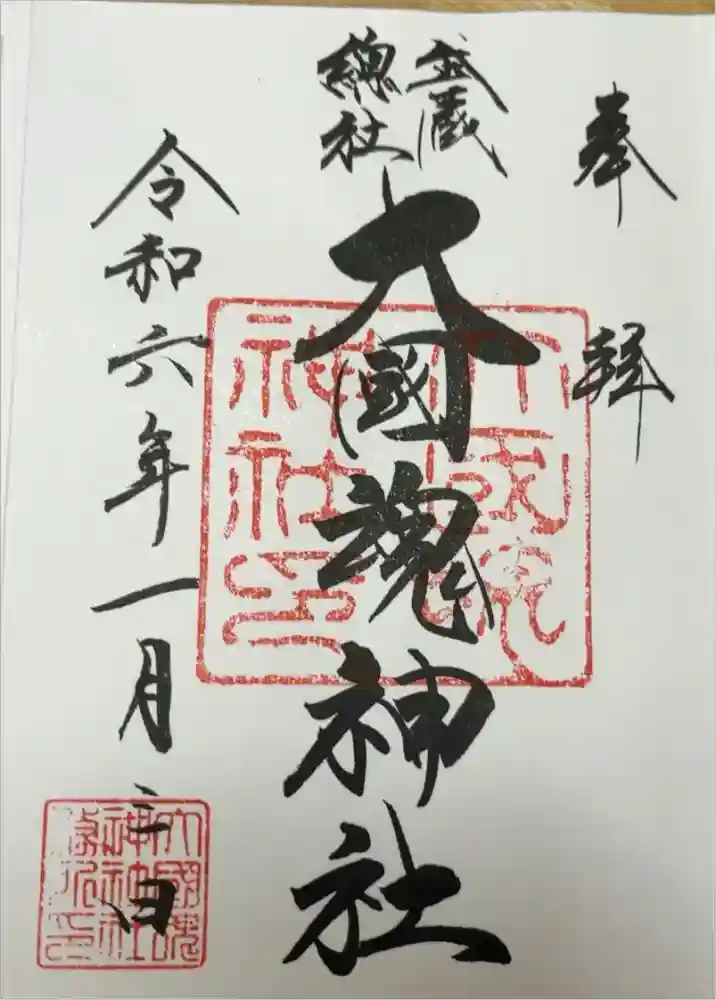 奉拝
武蔵
總社
大國魂神社
令和六年一月三日
大國魂
神社印
大國魂
神社社